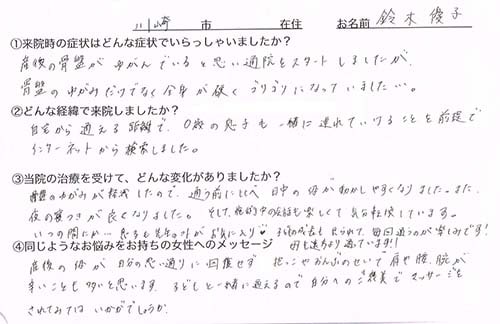 川崎 市 在住 お名前 鈴木優子
①来院時の症状はどんな症状でいらっしゃいましたか？
産後の骨盤がゆがんでいると思い通院をスタートしましたが、
骨盤のゆがみだけでなく全身が硬くゴリゴリになっていました…。
②どんな経緯で来院しましたか？
自宅から通える距離で、0歳の息子も一緒に連れていけることを前提で
インターネットから検索しました。
③当院の治療を受けて、どんな変化がありましたか？
骨盤のゆがみが軽減したので、通う前に比べ日中の体が動かしやすくなりました。また、
夜の寝つきが良くなりました。そして、施術中の会話も楽しくて気分転換しています。
いつの間にか息子も先生 がお気に入り 子供の成長も見られて、毎回通うのが楽しみです！
④同じようなお悩みをお持ちの女性へのメッセージ 母も違うより通っています！
産後の体が自分の思い通りに回復せず 抱っこやおんぶのせいで肩や腰、腕が
辛いことも多いと思います。子どもと一緒に通えるので自分へのご褒美でマッサージを
されてみてはいかがでしょうか。